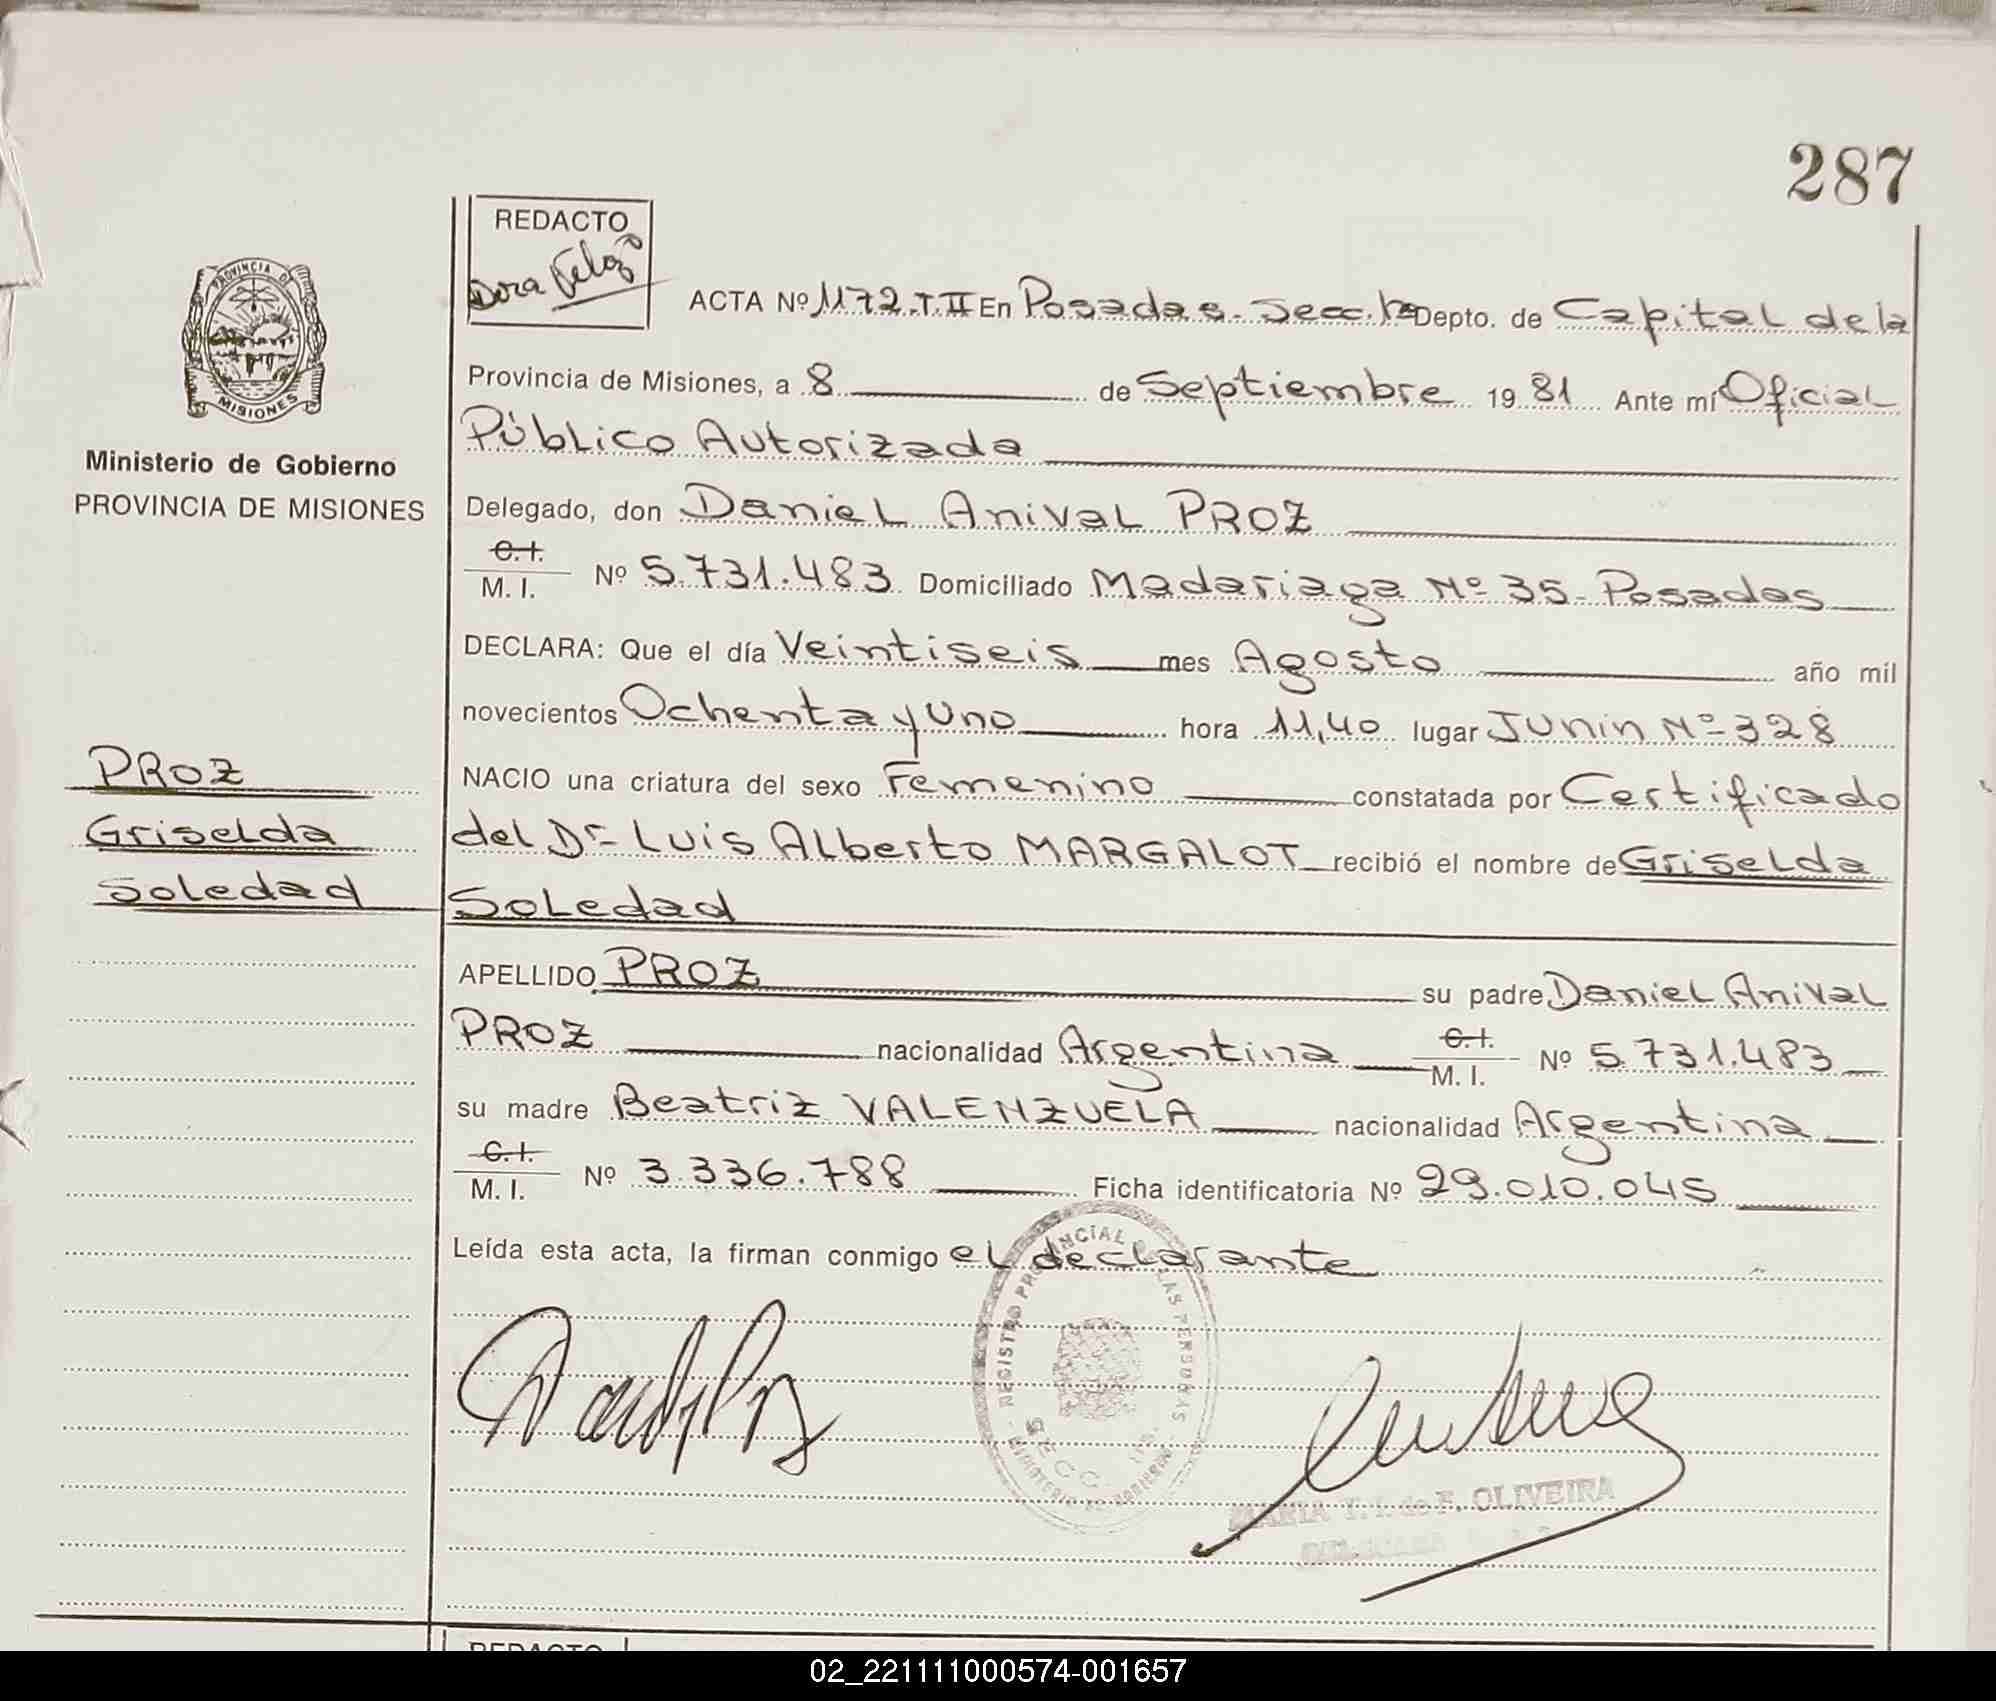 287
REDACTO
Dora Veloz
PROVINCIA DE
MISIONES
Ministerio de Gobierno
PROVINCIA DE MISIONES
ACTA Nº 1172.T.II En Posadas. Secc. 1ra Depto. de Capital de la
Provincia de Misiones, a 8 de Septiembre 1981 Ante mí Oficial
Público Autorizada
Delegado, don Daniel Anival PROZ
C.I.
M. I. Nº 5.731.483 Domiciliado Madariaga Nº 35- Posadas
DECLARA: Que el día Veintiseis mes Agosto año mil
novecientos Ochenta y Uno hora 11,40 lugar JUnin Nº 328
NACIO una criatura del sexo Femenino constatada por Certificado
del Dr- LUis Alberto MARGALOT recibió el nombre de Griselda
Soledad
PROZ
Griselda
Soledad
APELLIDO PROZ su padre Daniel Anival
PROZ nacionalidad Argentina C.I. M. I. Nº 5.731.483
su madre Beatriz VALENZUELA nacionalidad Argentina
C.I.
M. I. Nº 3.336.788 Ficha identificatoria Nº 29.010.045
Leída esta acta, la firman conmigo el declarante
REGISTRO PROVINCIAL DE LAS PERSONAS
SECC.
MINISTERIO DE GOBIERNO - MISIONES
MARIA T. I. de F. OLIVEIRA
REDACTO
02_221111000574-001657